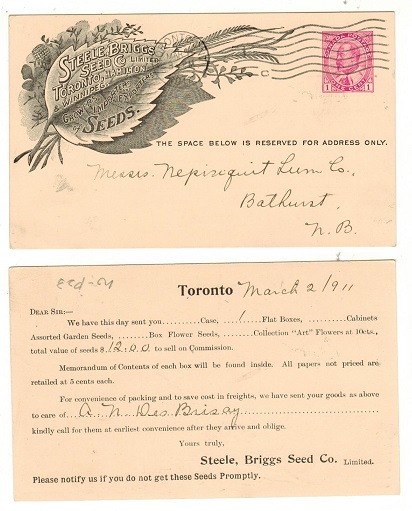 STEELE, BRIGGS
SEED CO LIMITED
TORONTO, HAMILTON
& WINNIPEG
GROWERS, IMPORTERS, EXPORTERS
OF SEEDS.
CANADA POSTAGE
1 ONE CENT 1
THE SPACE BELOW IS RESERVED FOR ADDRESS ONLY.
Messrs. Nepisiquit Lum Co.,
Bathurst,
N.B.
Toronto March 2/911
DEAR SIR:—
We have this day sent you..........Case, ....1....Flat Boxes, ..........Cabinets
Assorted Garden Seeds, ..........Box Flower Seeds, ..........Collection "Art" Flowers at 10cts.,
total value of seeds $12.00 to sell on Commission.
Memorandum of Contents of each box will be found inside. All papers not priced are
retailed at 5 cents each.
For convenience of packing and to save cost in freights, we have sent your goods as above
to care of A. N. Des Brisay
kindly call for them at earliest convenience after they arrive and oblige.
Yours truly,
Steele, Briggs Seed Co. Limited.
Please notify us if you do not get these Seeds Promptly.